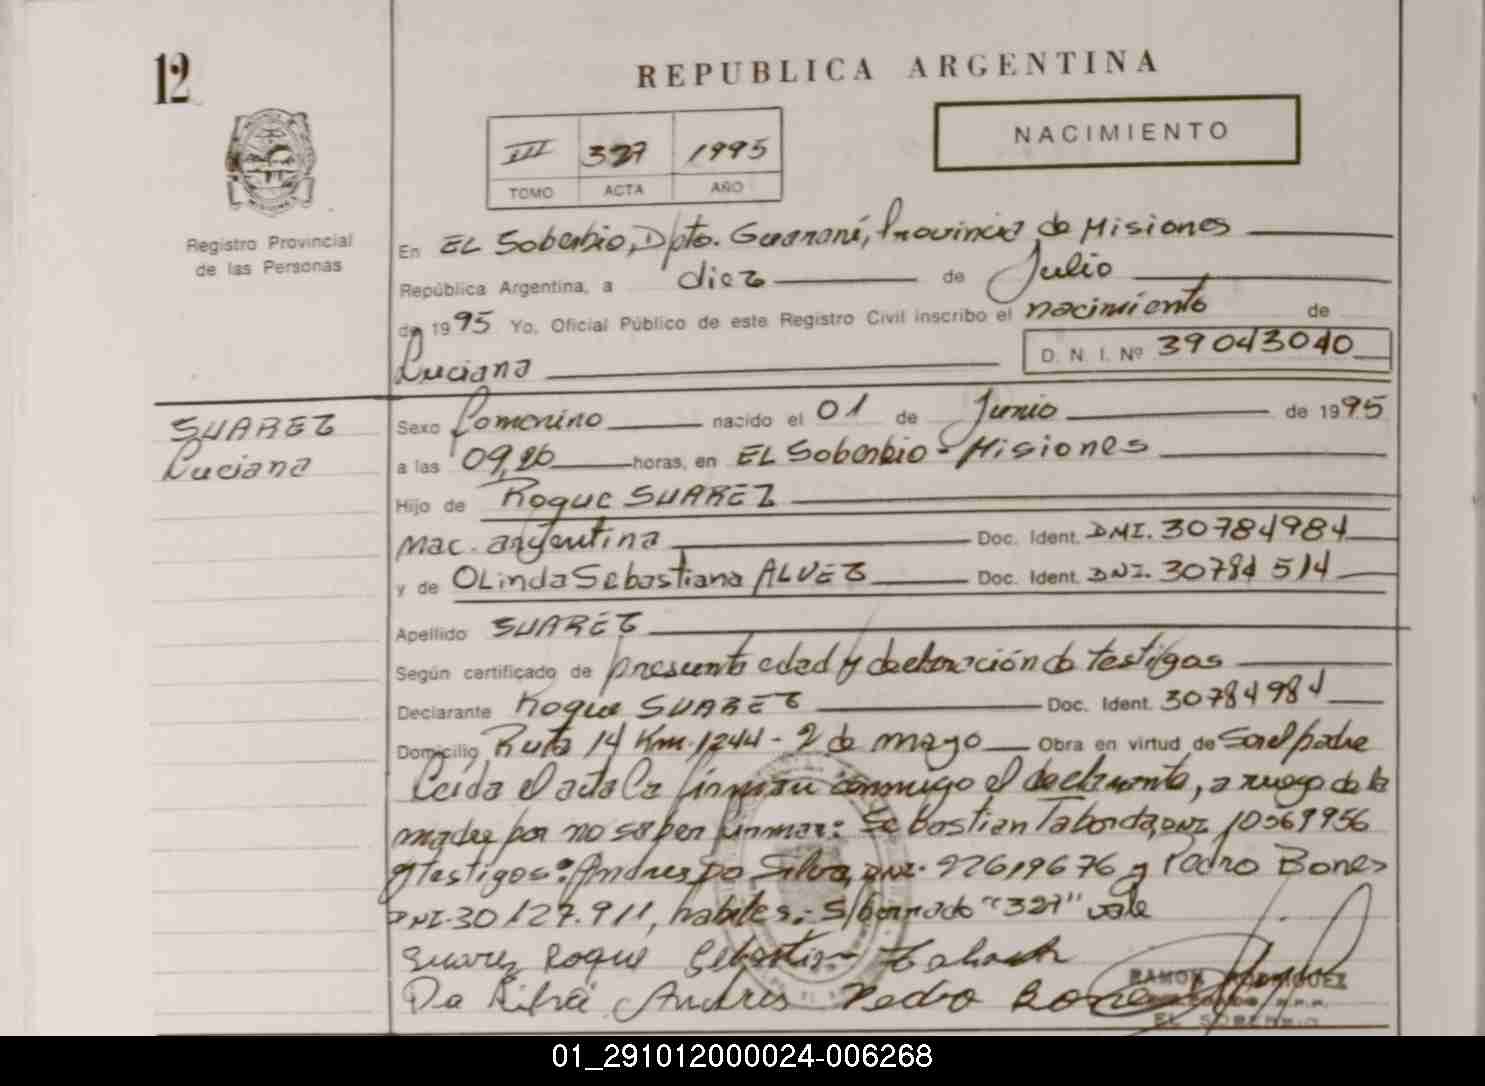 12
REPUBLICA ARGENTINA
NACIMIENTO
III 327 1995
TOMO ACTA AÑO
Registro Provincial
de las Personas
En EL Soberbio, Dpto. Guaraní, Provincia de Misiones
República Argentina, a diez de Julio
de 1995 Yo, Oficial Público de este Registro Civil inscribo el nacimiento de
Luciana D. N. I. Nº 39043040
SUAREZ
Luciana
Sexo femenino nacido el 01 de Junio de 1995
a las 09,20 horas, en EL Soberbio - Misiones
Hijo de Roque SUAREZ
Nac. argentina Doc. Ident. DNI. 30784984
y de OLinda Sebastiana ALVEZ Doc. Ident. DNI. 30784514
Apellido SUAREZ
Según certificado de presunta edad y declaración de testigos
Declarante Roque SUAREZ Doc. Ident. 30784984
Domicilio Ruta 14 Km. 1244 - 2 de mayo Obra en virtud de Ser el padre
Leída el acta la firman conmigo el declarante, a ruego de la
madre por no saber firmar: Sebastian Taborda, DNI 10569956
y testigos: Andres Da Silva, DNI. 92619676 y Pedro Bones
DNI. 30127.911, habiles.- S/borrado "327" vale
Suarez Roque Sebastian Taborda
Da Silva Andres Pedro Bones
RAMON RODRIGUEZ
EL SOBERBIO
01_291012000024-006268